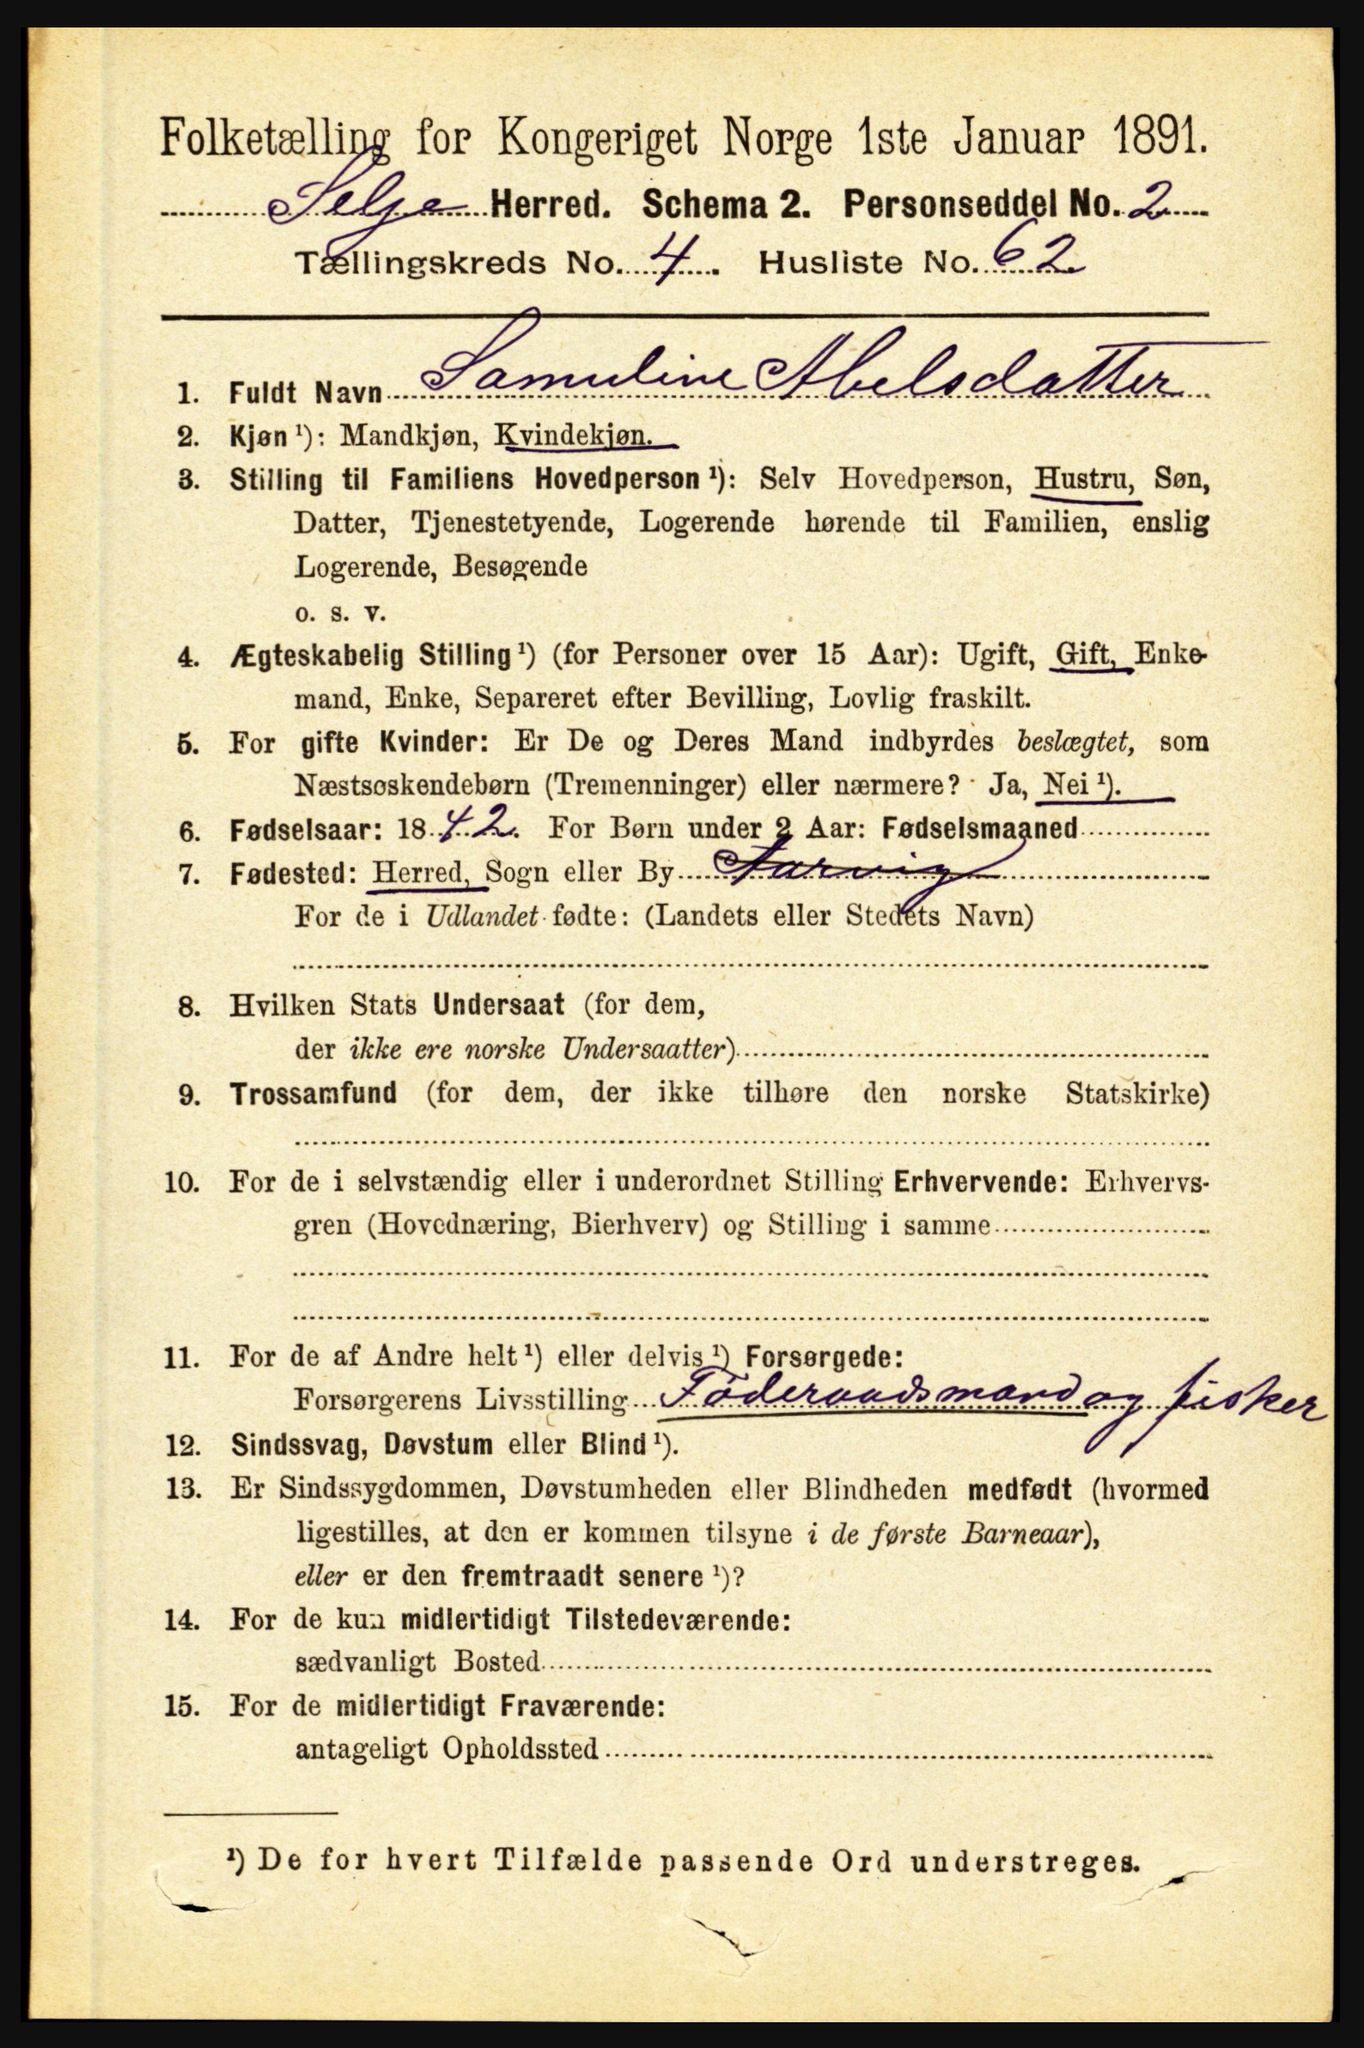 Folketælling for Kongeriget Norge 1ste Januar 1891.
Selje Herred. Schema 2. Personseddel No. 2
Tællingskreds No. 4. Husliste No. 62.
1. Fuldt Navn Samuline Abelsdatter
2. Kjøn ¹): Mandkjøn, Kvindekjøn.
3. Stilling til Familiens Hovedperson ¹): Selv Hovedperson, Hustru, Søn,
Datter, Tjenestetyende, Logerende hørende til Familien, enslig
Logerende, Besøgende
o. s. v.
4. Ægteskabelig Stilling ¹) (for Personer over 15 Aar): Ugift, Gift, Enke-
mand, Enke, Separeret efter Bevilling, Lovlig fraskilt.
5. For gifte Kvinder: Er De og Deres Mand indbyrdes beslægtet, som
Næstsøskendebørn (Tremenninger) eller nærmere? Ja, Nei ¹).
6. Fødselsaar: 1842. For Børn under 2 Aar: Fødselsmaaned
7. Fødested: Herred, Sogn eller By Aarvig
For de i Udlandet fødte: (Landets eller Stedets Navn)
8. Hvilken Stats Undersaat (for dem,
der ikke ere norske Undersaatter)
9. Trossamfund (for dem, der ikke tilhøre den norske Statskirke)
10. For de i selvstændig eller i underordnet Stilling Erhvervende: Erhvervs-
gren (Hovednæring, Bierhverv) og Stilling i samme
11. For de af Andre helt ¹) eller delvis ¹) Forsørgede:
Forsørgerens Livsstilling Føderaadsmand og fisker
12. Sindssvag, Døvstum eller Blind ¹).
13. Er Sindssygdommen, Døvstumheden eller Blindheden medfødt (hvormed
ligestilles, at den er kommen tilsyne i de første Barneaar),
eller er den fremtraadt senere ¹)?
14. For de kun midlertidigt Tilstedeværende:
sædvanligt Bosted
15. For de midlertidigt Fraværende:
antageligt Opholdssted
¹) De for hvert Tilfælde passende Ord understreges.